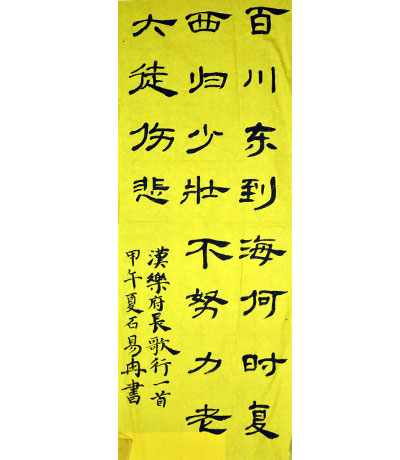 百川东到海何时复
西归少壯不努力老
大徒伤悲
漢樂府長歌行一首
甲午夏石易冉書